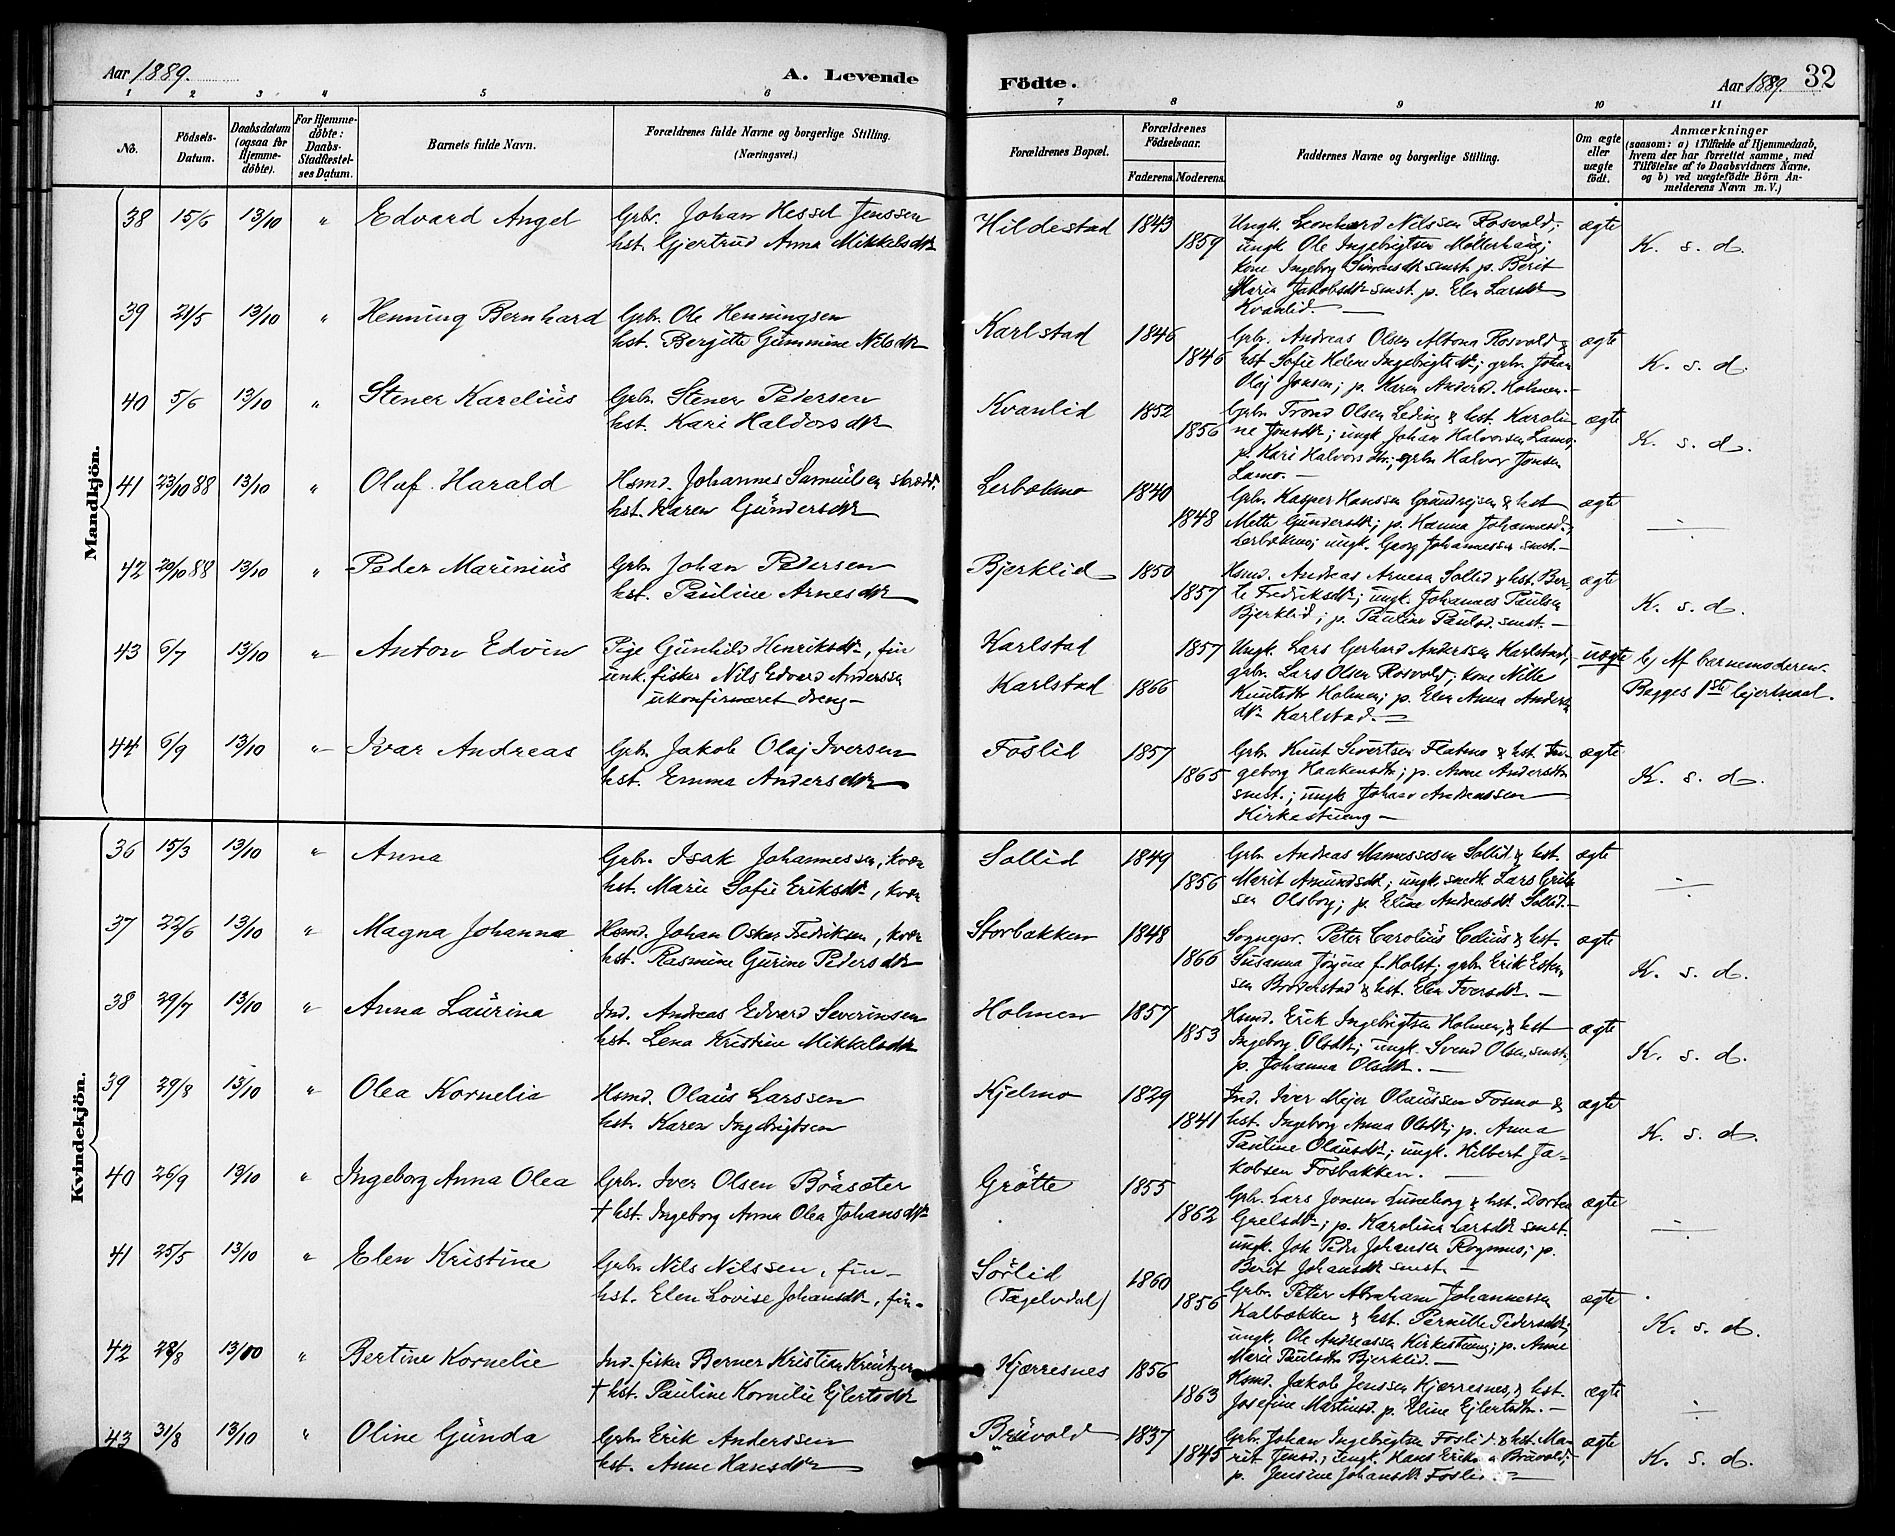 Aar 1889.
A. Levende
Födte.
Aar 1889.
32
1 2 3 4 5 6 7 8 9 10 11
No.
Födsels-Datum.
Daabsdatum (ogsaa for Hjemme-döbte).
For Hjemme-döbte: Daabs-Stadfæstel-ses Datum.
Barnets fulde Navn.
Forældrenes fulde Navne og borgerlige Stilling. (Næringsvei.)
Forældrenes Bopæl.
Forældrenes Födselsaar.
Faderens. Moderens.
Faddernes Navne og borgerlige Stilling.
Om ægte eller uægte födt.
Anmærkninger
(saasom: a) i Tilfælde af Hjemmedaab,
hvem der har forrettet samme, med
Tilföielse af to Daabsvidners Navne,
og b) ved uægtefödte Börn An-
melderens Navn m. V.)
Mandkjön.
38 15/6 13/10 " Edvard Angel Grbr. Johan Hessel Jenssen Hildestad 1843 Ungk. Leonhard Nilssen Rosvold; ægte
hst. Gjertrud Anna Mikkelsdtr 1859 ungk Ole Ingebrigtsen Möllerhaug; K. s. d.
kone Ingeborg Simonsdtr smst. p. Berit
Maria Jakobsdtr smst. p. Elen Larsdtr
Kvanlid.
39 21/5 13/10 " Henning Bernhard Grbr. Ole Henningsen Karlstad 1846 Grbr. Andreas Olsen Altona Rosvold & ægte
hst. Berjitte Gummine Nilsdtr 1846 hst Sofie Helene Ingebrigtsdtr; grbr Johan K. s. d.
Olaj Jonsen; p. Karen Andersd. Holmen.
40 5/6 13/10 " Stener Karelius Grbr. Stener Pedersen Kvanlid 1852 Grbr. Trond Olsen Leding & hst. Karoli- ægte
hst. Kari Haldorsdtr 1856 ne Jonsdtr; ungk Johan Halvorsen Lamo; K. s. d.
p. Kari Halvorsdtr; grbr Halvor Jonsen
Lamo.
41 23/10 88 13/10 " Olaf Harald Hsmd. Johannes Samuelsen skrædr. Lerbækmo 1840 Grbr. Kasper Hanssen Grundvejsen & hst ægte
hst. Karen Gundersdtr 1848 Mette Gundersdtr; p. Hanna Johannesd. ÷
Lerbækmo; ungk. Georg Johannessen smst.
42 20/10 88 13/10 " Peder Marinius Grbr. Johan Pedersen Bjerklid 1850 Hsmd. Andreas Arnesen Sollid & hst. Ber- ægte
hst. Pauline Arnesdtr 1857 te Fredriksdtr; ungk. Johannes Paulsen K. s. d.
Bjerklid; p. Pauline Paulsd. smst.
43 6/7 13/10 " Anton Edvin Pige Gunhild Henriksdtr, fin Karlstad 1857 Ungk. Lars Gerhard Anderssen Karlstad; uægte b) Af barnemoderen.
unk. fisker Nils Edvard Anderssen Karlstad 1866 grbr. Lars Olsen Rosvold; kone Nille Begges 1ste lejermaal.
ukonfirmeret dreng Knutsdtr Holmen; p. Elen Anna Anders-
dtr Karlstad.
44 6/9 13/10 " Ivar Andreas Grbr. Jakob Olaj Iversen Foslid 1857 Grbr. Knut Sivertsen Flatmo & hst. In- ægte
hst. Emma Andersdtr 1865 geborg Haakensdtr; p. Anne Andersdtr K. s. d.
smst.; ungk Johan Andreassen
Kirkestueng
Kvindekjön.
36 15/3 13/10 " Anna Grbr. Isak Johannessen, kvæn Sollid 1849 Grbr Andreas Manassesen Sollid & hst. ægte
hst. Marie Sofie Eriksdtr, kvæn 1856 Marit Amundsdtr; ungk. smedk. Lars ÷
sen Olsborg; p. Eline Andreasdtr Sollid.
37 22/6 13/10 " Magna Johanna Hsmd. Johan Oskar Fredriksen, kvæn Storbakken 1848 Sognepr. Peter Carolius Celius & hst. ægte
hst. Rasmine Gurine Pedersdtr 1866 Susanna Jörgine f. Holst; grbr. Erik Esten- K. s. d.
sen Broderstad & hst. Elen Iversdtr.
38 29/7 13/10 " Anna Laurina Ind. Andreas Edvard Severinsen Holmen 1857 Hsmd. Erik Ingebrigtsen Holmen, & hst ægte
hst. Lena Kristine Mikkelsdtr 1853 Ingeborg Olsdtr; ungk. Svend Olsen smst; K. s. d.
p. Johanna Olsdtr.
39 29/8 13/10 " Olea Kornelia Hsmd. Olaus Larssen Kjelmo 1829 Ind. Iver Mejer Olaussen Fosmo & ægte
hst. Karen Ingebrigtsen 1841 hst. Ingeborg Anna Olsdtr; p. Anna K. s. d.
Pauline Olausdtr; ungk. Hilbert Ja-
kobsen Fosbakken.
40 26/9 13/10 " Ingeborg Anna Olea Grbr. Iver Olsen Böasæter Grötte 1855 Grbr. Lars Jonsen Luneborg & hst. Dortea ægte
† hst. Ingeborg Anna Olea Johansdtr 1862 Grelsdtr; p. Karoline Larsdtr smst. ÷
ungk. Joh. Peder Johansen Rognmo; p.
Berit Johansdtr smst.
41 25/5 13/10 " Elen Kristine Grbr. Nils Nilssen, fin Sörlid 1860 Grbr. Peter Abraham Johannessen ægte
hst. Elen Lovise Johansdtr, fin (Tagelvdal) 1856 Kalbækken & hst. Pernille Pedersdtr; K. s. d.
ungk. Ole Andreassen Kirkestueng; p. Anne
Marie Paulsdtr Bjerklid.
42 28/8 13/10 " Bertine Kornelie Ind. fisker Berner Kristian Kreutzer Kjærresnes 1856 Hsmd. Jakob Jenssen Kjærresnes, & hst. ægte
† hst. Pauline Kornelie Ejlertsdtr 1863 Josefine Martinsd. p. Eline Ejlertsdtr. ÷
43 31/8 13/10 " Oline Gunda Grbr. Erik Anderssen Bruvold 1837 Grbr. Johan Ingebrigtsen Foslid & hst. Ma- ægte
hst. Anne Hansdtr 1845 rit Jensd.; ungk. Hans Eriksen Bruvold; K. s. d.
p. Jensine Johansdtr Foslid